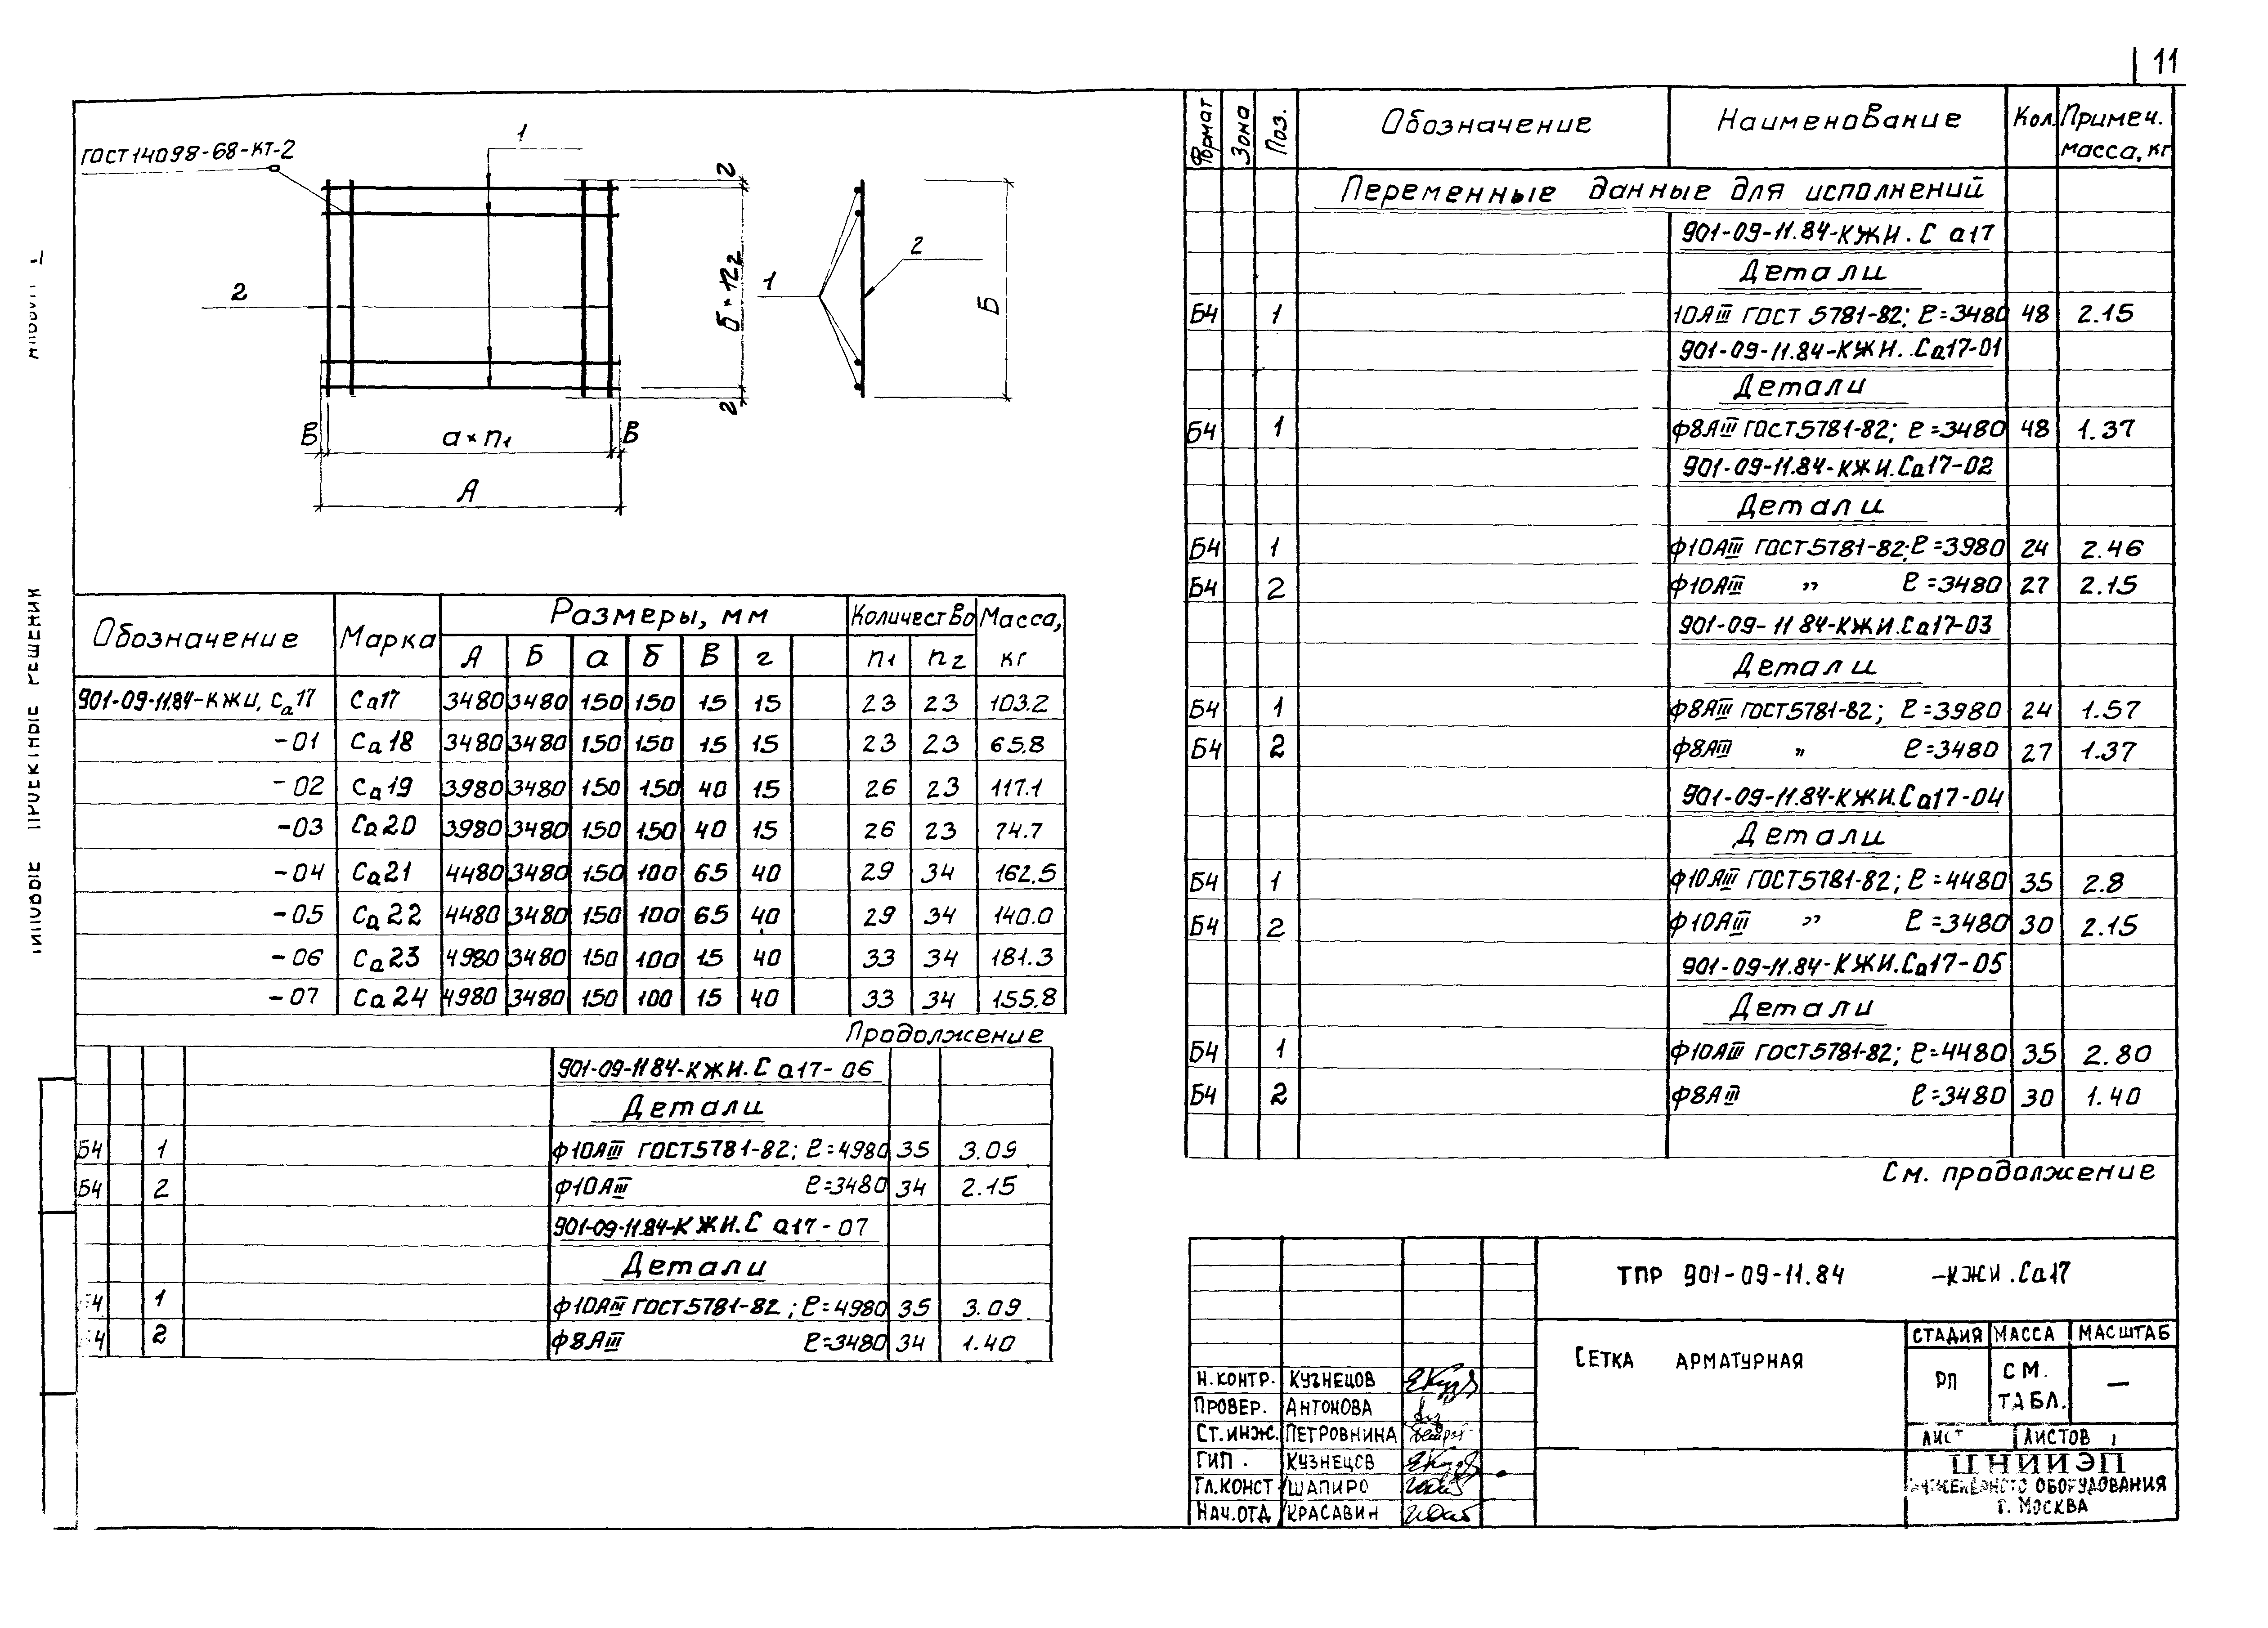 11
ГОСТ 14098-68-КТ-2
1
2
г
б×n2
г
В
а×n1
В
А
1
2
Б
Обозначение Марка Размеры, мм Количество Масса, кг
А Б а б В г n1 n2
901-09-11.84-КЖИ, Са17 Са17 3480 3480 150 150 15 15 23 23 103.2
-01 Са18 3480 3480 150 150 15 15 23 23 65.8
-02 Са19 3980 3480 150 150 40 15 26 23 117.1
-03 Са20 3980 3480 150 150 40 15 26 23 74.7
-04 Са21 4480 3480 150 100 65 40 29 34 162.5
-05 Са22 4480 3480 150 100 65 40 29 34 140.0
-06 Са23 4980 3480 150 100 15 40 33 34 181.3
-07 Са24 4980 3480 150 100 15 40 33 34 155.8
Продолжение
901-09-11.84-КЖИ.Са17-06
Детали
Б4 1 ф10АIII ГОСТ5781-82; ℓ=4980 35 3.09
Б4 2 ф10АIII ℓ=3480 34 2.15
901-09-11.84-КЖИ.Са17-07
Детали
1 ф10АIII ГОСТ5781-82; ℓ=4980 35 3.09
2 ф8АIII ℓ=3480 34 1.40
Формат Зона Поз. Обозначение Наименование Кол. Примеч. масса, кг
Переменные данные для исполнений
901-09-11.84-КЖИ.Са17
Детали
Б4 1 10АIII ГОСТ 5781-82; ℓ=3480 48 2.15
901-09-11.84-КЖИ.Са17-01
Детали
Б4 1 ф8АIII ГОСТ5781-82; ℓ=3480 48 1.37
901-09-11.84-КЖИ.Са17-02
Детали
Б4 1 ф10АIII ГОСТ5781-82; ℓ=3980 24 2.46
Б4 2 ф10АIII " ℓ=3480 27 2.15
901-09-11 84-КЖИ.Са17-03
Детали
Б4 1 ф8АIII ГОСТ5781-82; ℓ=3980 24 1.57
Б4 2 ф8АIII " ℓ=3480 27 1.37
901-09-11.84-КЖИ.Са17-04
Детали
Б4 1 ф10АIII ГОСТ5781-82; ℓ=4480 35 2.8
Б4 2 ф10АIII " ℓ=3480 30 2.15
901-09-11.84-КЖИ.Са17-05
Детали
Б4 1 ф10АIII ГОСТ5781-82; ℓ=4480 35 2.80
Б4 2 ф8АIII ℓ=3480 30 1.40
См. продолжение
ТПР 901-09-11.84 -КЖИ.Са17
СЕТКА АРМАТУРНАЯ
СТАДИЯ МАССА МАСШТАБ
РП СМ. ТАБЛ. —
ЛИСТ ЛИСТОВ 1
ЦНИИЭП
ИНЖЕНЕРНОГО ОБОРУДОВАНИЯ
Г. МОСКВА
Н.КОНТР. КУЗНЕЦОВ
ПРОВЕР. АНТОНОВА
СТ.ИНЖ. ПЕТРОВНИНА
ГИП. КУЗНЕЦОВ
ГЛ.КОНСТ ШАПИРО
НАЧ.ОТД КРАСАВИН
ПРОЕКТНЫЕ РЕШЕНИЯ